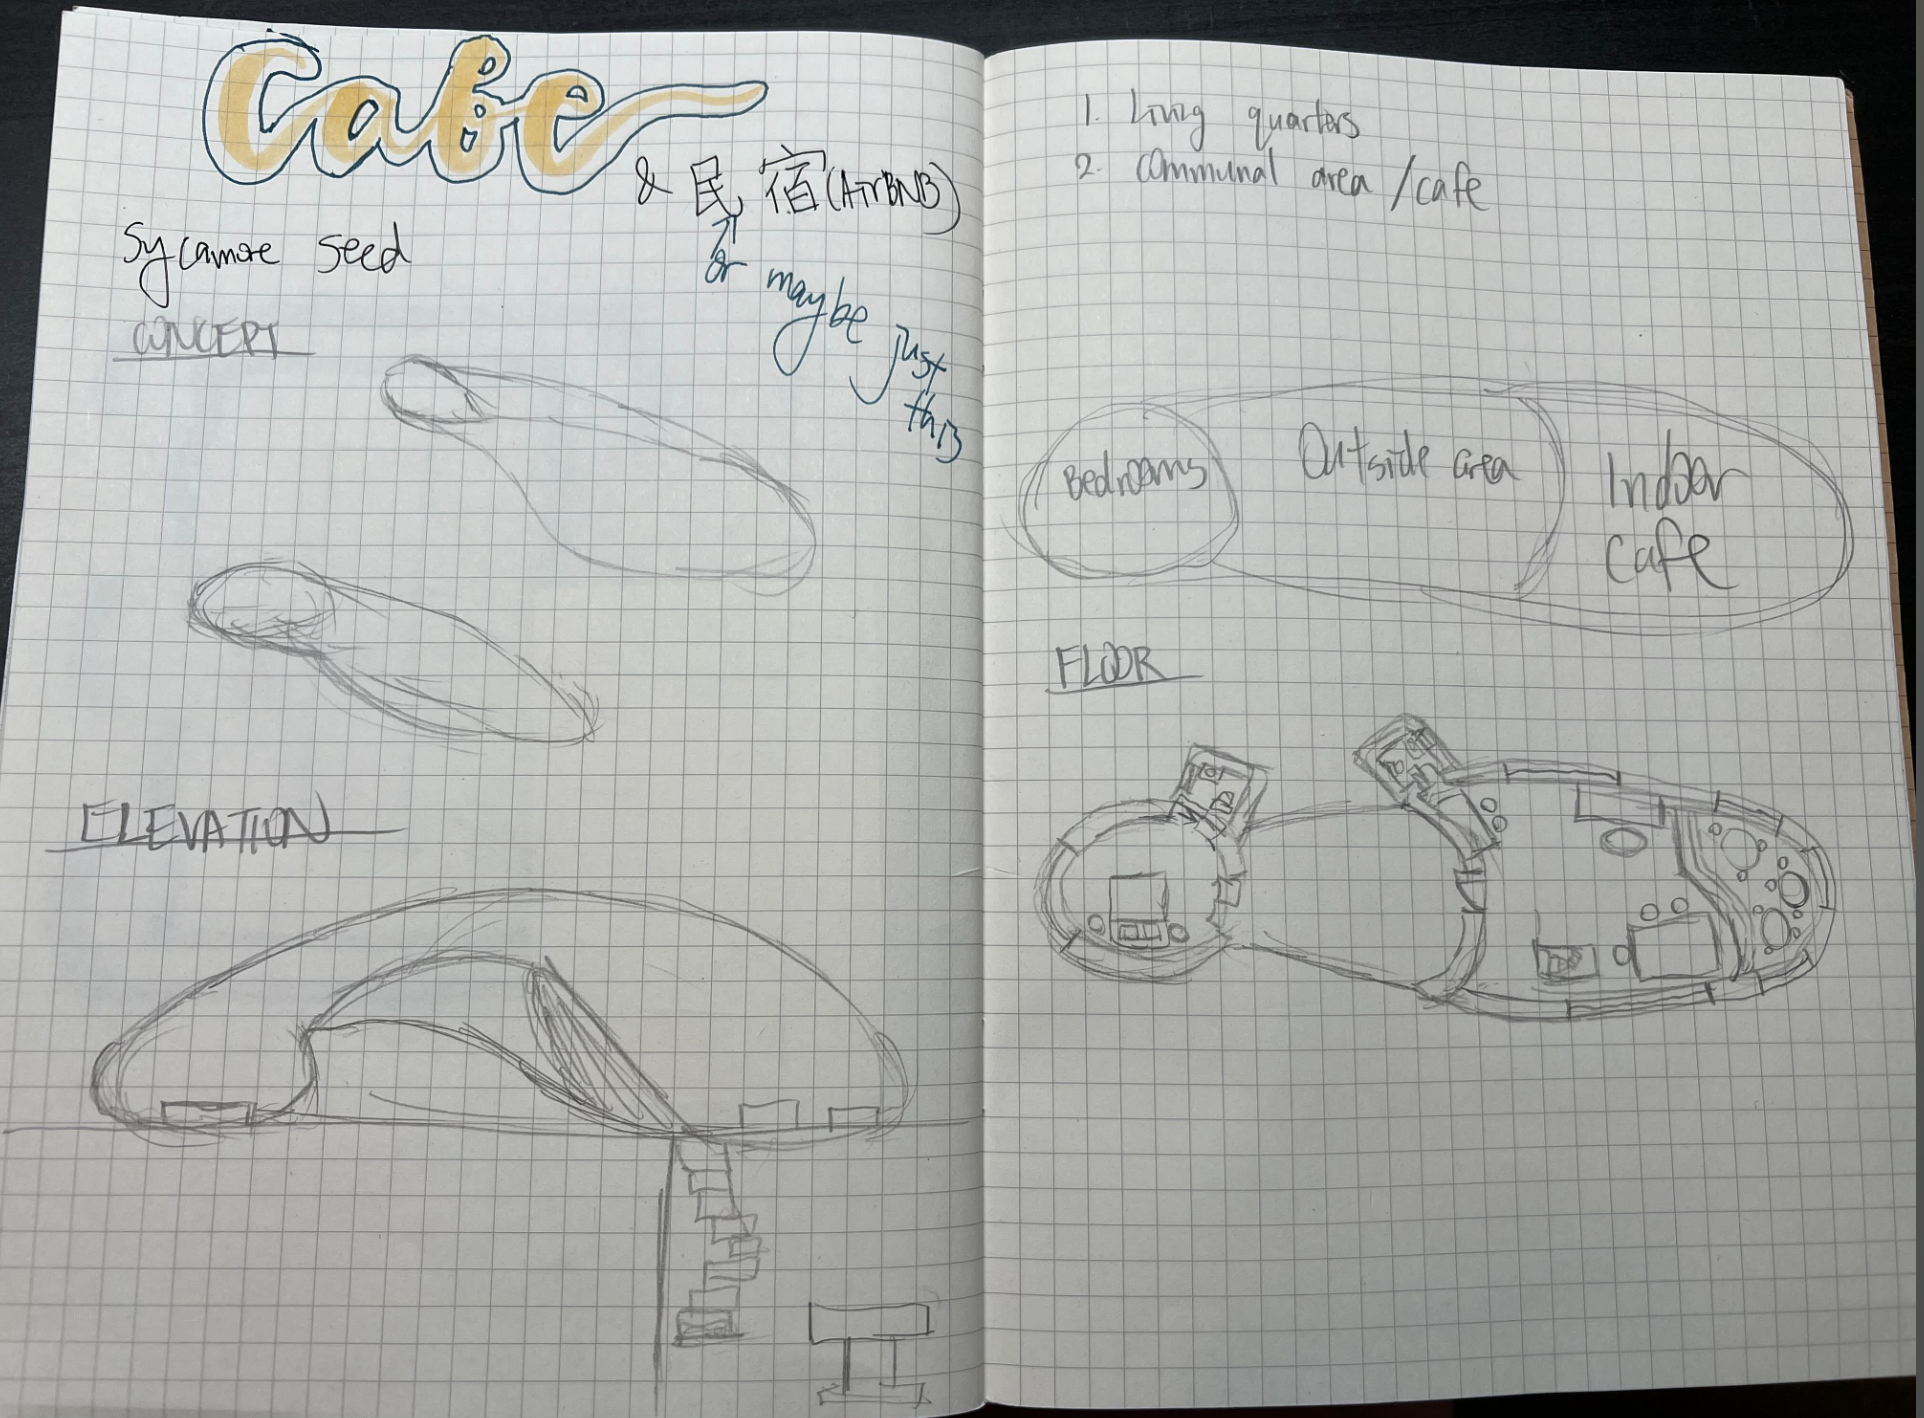 Cafe
& 民宿(AirBNB)
or maybe just this
Sycamore seed
CONCEPT
ELEVATION
1. Living quarters
2. Communal area /cafe
Bedrooms
Outside area
Indoor
cafe
FLOOR